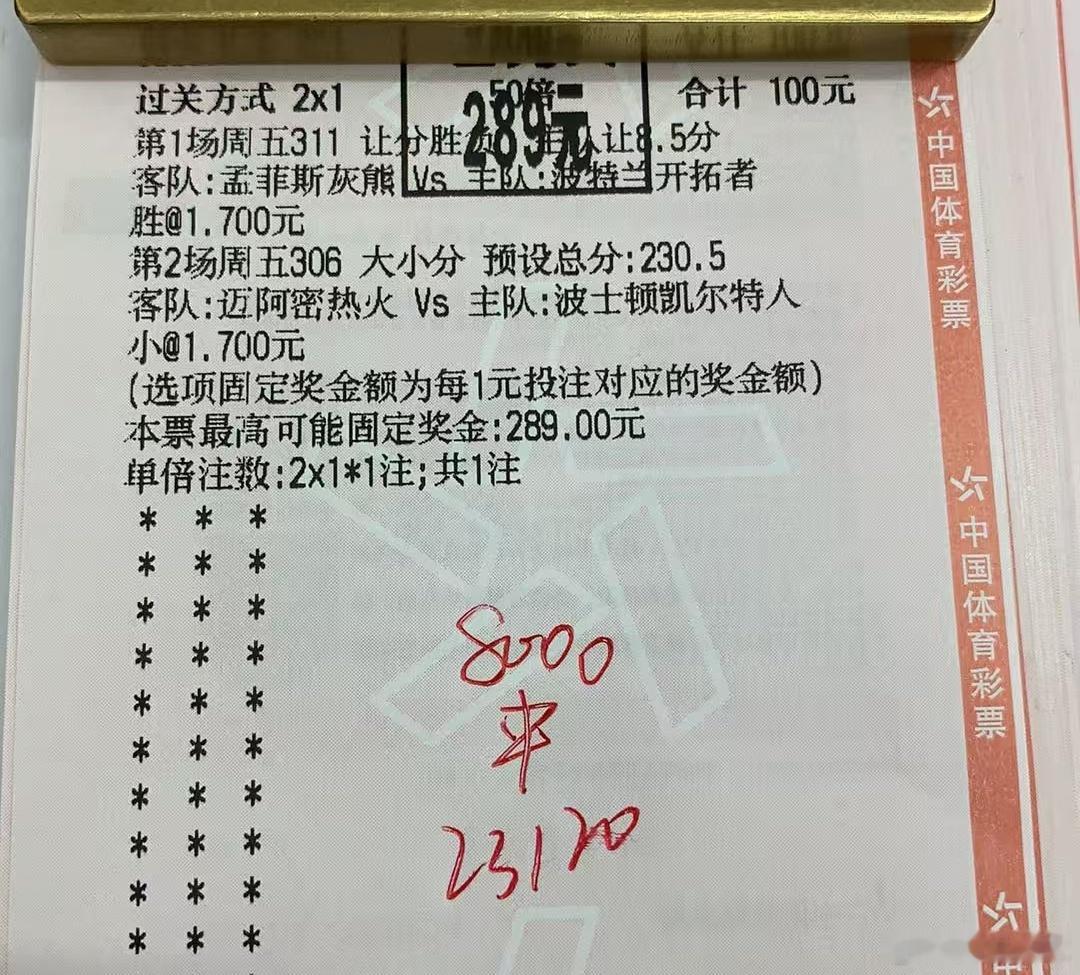 过关方式 2x1 50倍 合计 100元
289元
第1场周五311 让分胜负 主队让8.5分
客队:孟菲斯灰熊 Vs 主队:波特兰开拓者
胜@1.700元
第2场周五306 大小分 预设总分:230.5
客队:迈阿密热火 Vs 主队:波士顿凯尔特人
小@1.700元
(选项固定奖金额为每1元投注对应的奖金额)
本票最高可能固定奖金:289.00元
单倍注数:2x1*1注;共1注
* * *
* * *
* * *
* * *
* * *
* * *
* * *
* * *
* * *
* * *
8000
23120
中国体育彩票
中国体育彩票
中